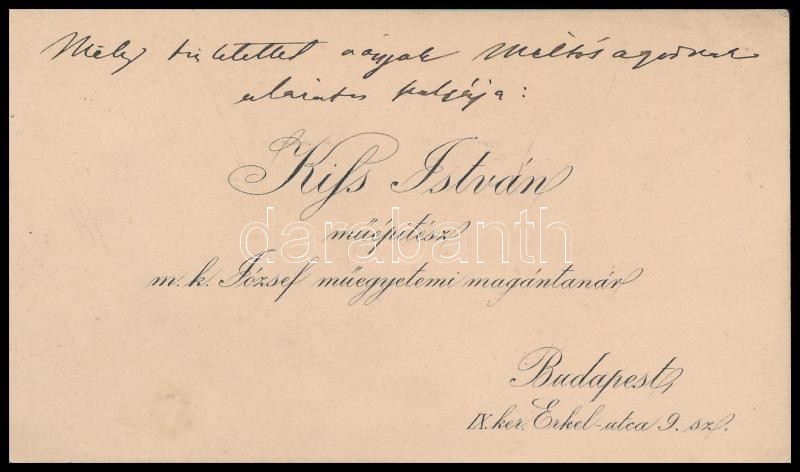 Mély tisztelettel vagyok Méltóságodnak
alázatos szolgája:
Kiss István
műépítész
darabanth
m. k. József műegyetemi magántanár
Budapest,
IX. ker. Erkel-utca 9. sz.